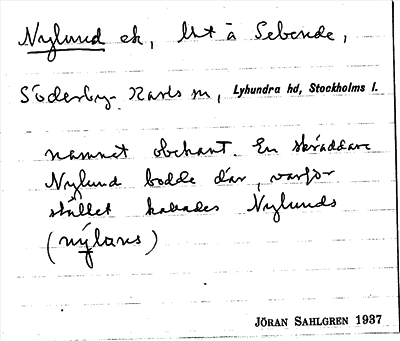 Nylund ek, Ut å Sebende,
Söderby-Karls sn, Lyhundra hd, Stockholms l.
namnet obekant. En skräddare
Nylund bodde där, varför
stället kallades Nylunds
(nýlans)
JÖRAN SAHLGREN 1937